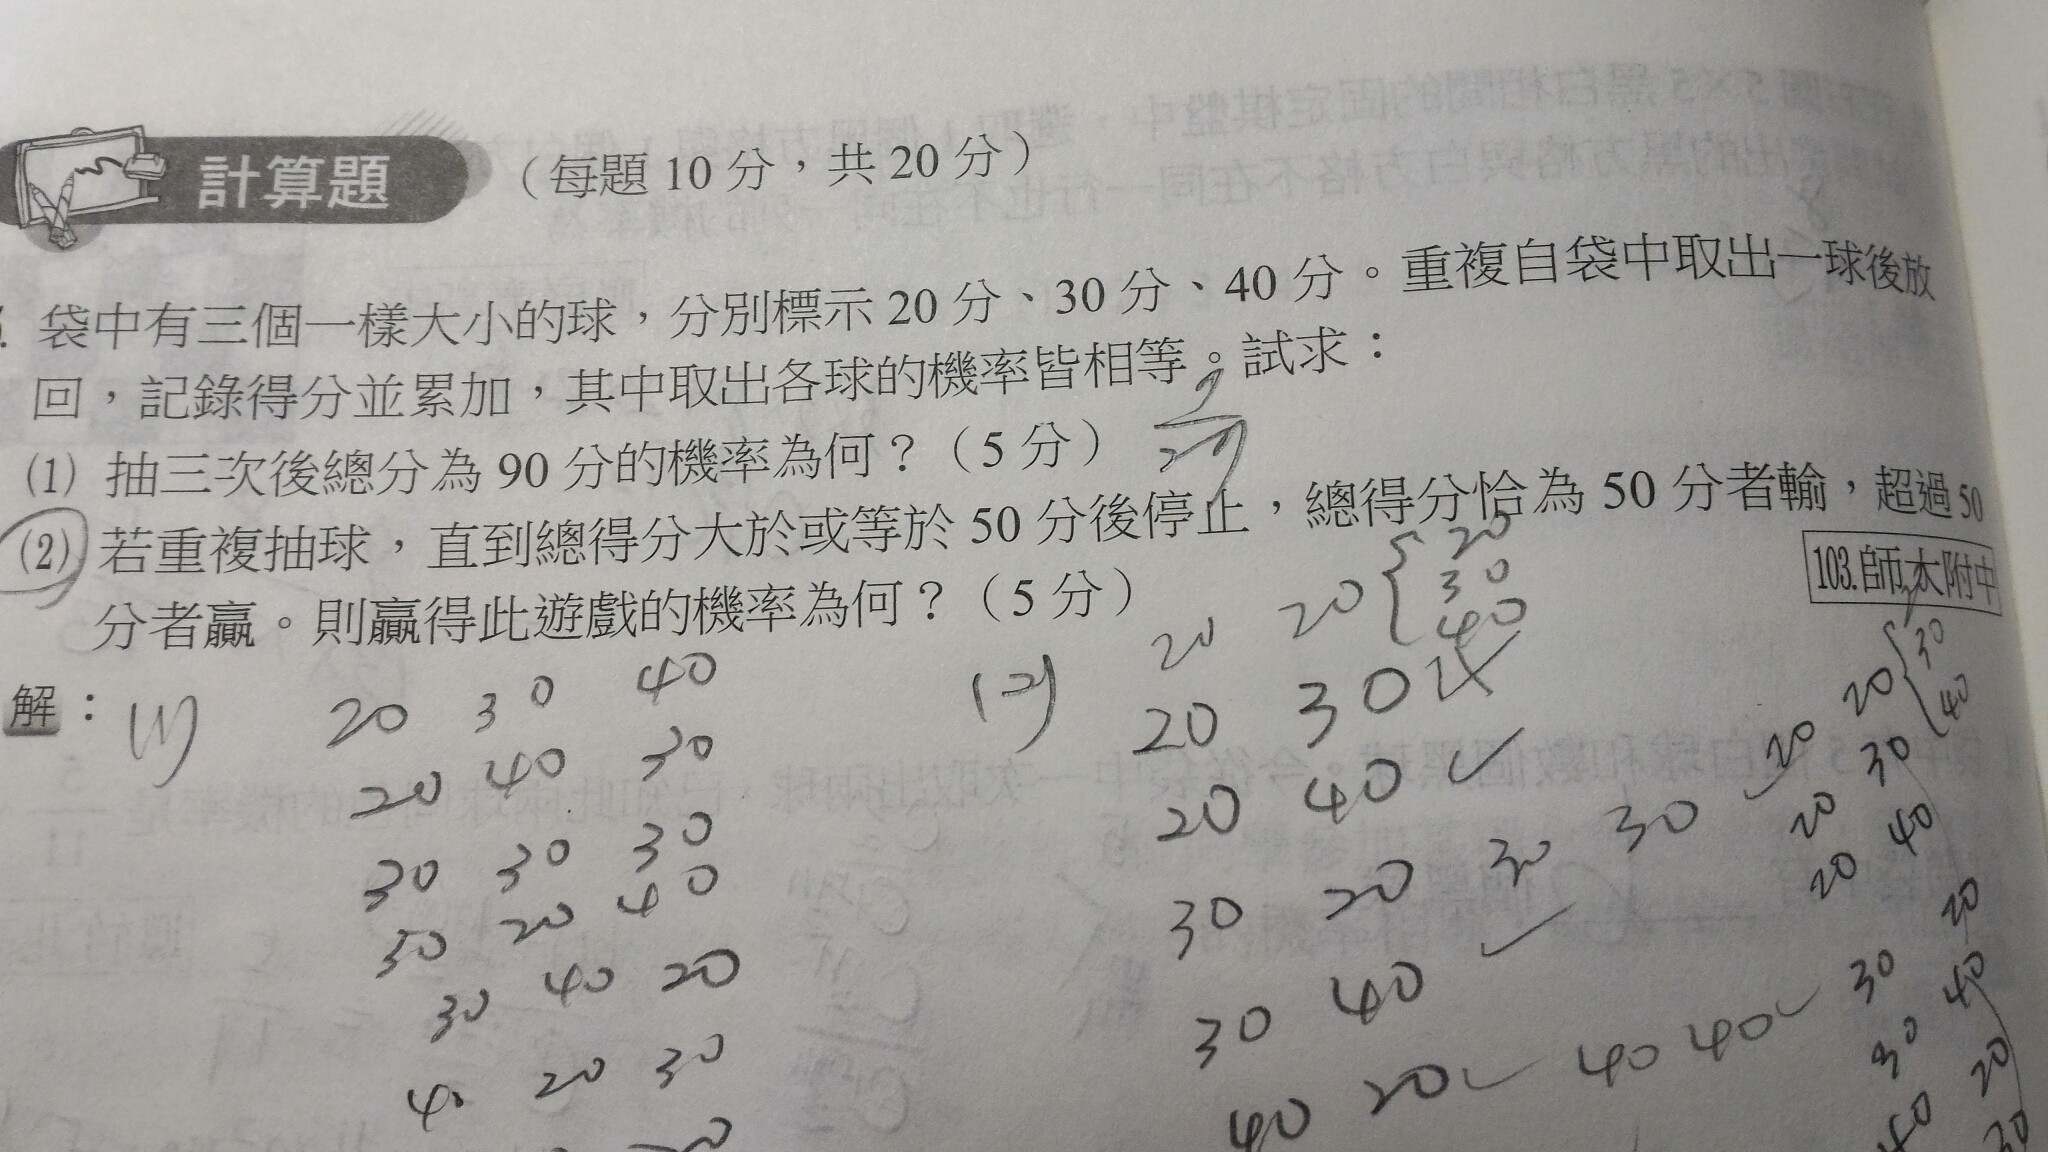 計算題 (每題 10 分，共 20 分)
. 袋中有三個一樣大小的球，分別標示 20 分、30 分、40 分。重複自袋中取出一球後放
回，記錄得分並累加，其中取出各球的機率皆相等。試求：
(1) 抽三次後總分為 90 分的機率為何？(5 分)
(2) 若重複抽球，直到總得分大於或等於 50 分後停止，總得分恰為 50 分者輸，超過 50
分者贏。則贏得此遊戲的機率為何？(5 分)
103.師大附中
解：(1)
20 30 40
20 40 30
30 30 30
30 20 40
30 40 20
40 20 30
20
(2)
20 20 { 20
30
40
20 30
20 40 ✓
30 20 30 30 ✓
30 40 ✓
40 20 ✓ 40 40 ✓
20 20 { 30
40
20 30
20 40
30 20
30 40
40 20
30